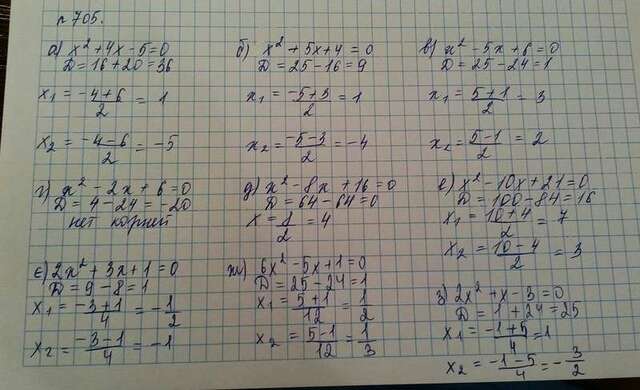 №705.
а) x² + 4x - 5 = 0
D = 16 + 20 = 36
x₁ = (-4+6)/2 = 1
x₂ = (-4-6)/2 = -5
б) x² + 5x + 4 = 0
D = 25 - 16 = 9
x₁ = (-5+3)/2 = 1
x₂ = (-5-3)/2 = -4
в) x² - 5x + 6 = 0
D = 25 - 24 = 1
x₁ = (5+1)/2 = 3
x₂ = (5-1)/2 = 2
г) x² - 2x + 6 = 0
D = 4 - 24 = -20
нет корней
д) x² - 8x + 16 = 0
D = 64 - 64 = 0
x = 8/2 = 4
е) x² - 10x + 21 = 0
D = 100 - 84 = 16
x₁ = (10+4)/2 = 7
x₂ = (10-4)/2 = 3
є) 2x² + 3x + 1 = 0
D = 9 - 8 = 1
x₁ = (-3+1)/4 = -1/2
x₂ = (-3-1)/4 = -1
ж) 6x² - 5x + 1 = 0
D = 25 - 24 = 1
x₁ = (5+1)/12 = 1/2
x₂ = (5-1)/12 = 1/3
з) 2x² + x - 3 = 0
D = 1 + 24 = 25
x₁ = (-1+5)/4 = 1
x₂ = (-1-5)/4 = -3/2